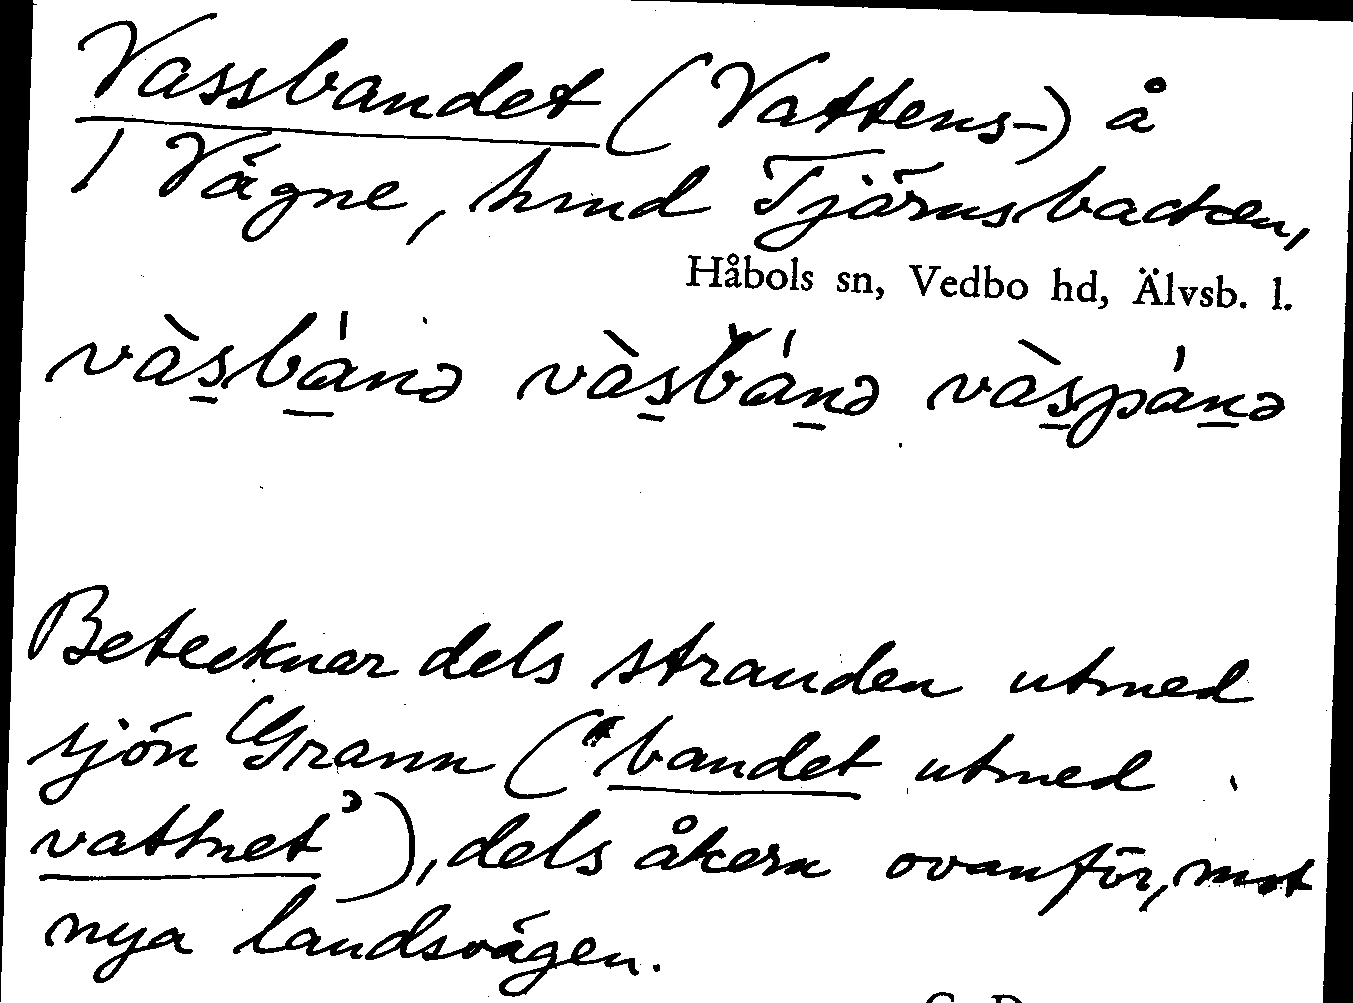 Vassbandet (Vattens-) å
1 Vägne, hmd Tjärnsbacken,
Håbols sn, Vedbo hd, Älvsb. l.
vàs̱bá̱nə vàs̱bánə̱ vàs̱páṉə
Betecknar dels stranden utmed
sjön Grann ("bandet utmed
vattnet"), dels åkern ovanför, mot
nya landsvägen.